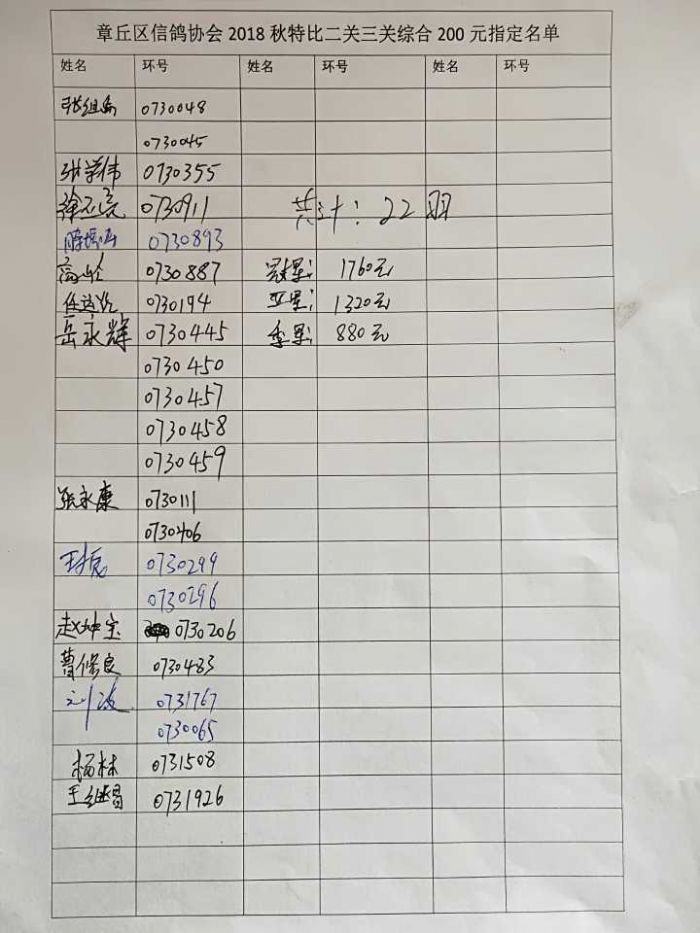 章丘区信鸽协会 2018 秋特比二关三关综合 200 元指定名单
姓名 环号 姓名 环号 姓名 环号
张组 0730048
0730045
张学伟 0730355
徐 0730911 共计：22羽
0730893
高 0730887 冠军：1760元
任 0730194 亚军：1320元
岳永辉 0730445 季军：880元
0730450
0730457
0730458
0730459
张永康 0730111
0730206
0730299
0730296
赵坤宝 0730206
曹修良 0730483
刘波 0731767
0730065
杨林 0731508
王继昌 0731926